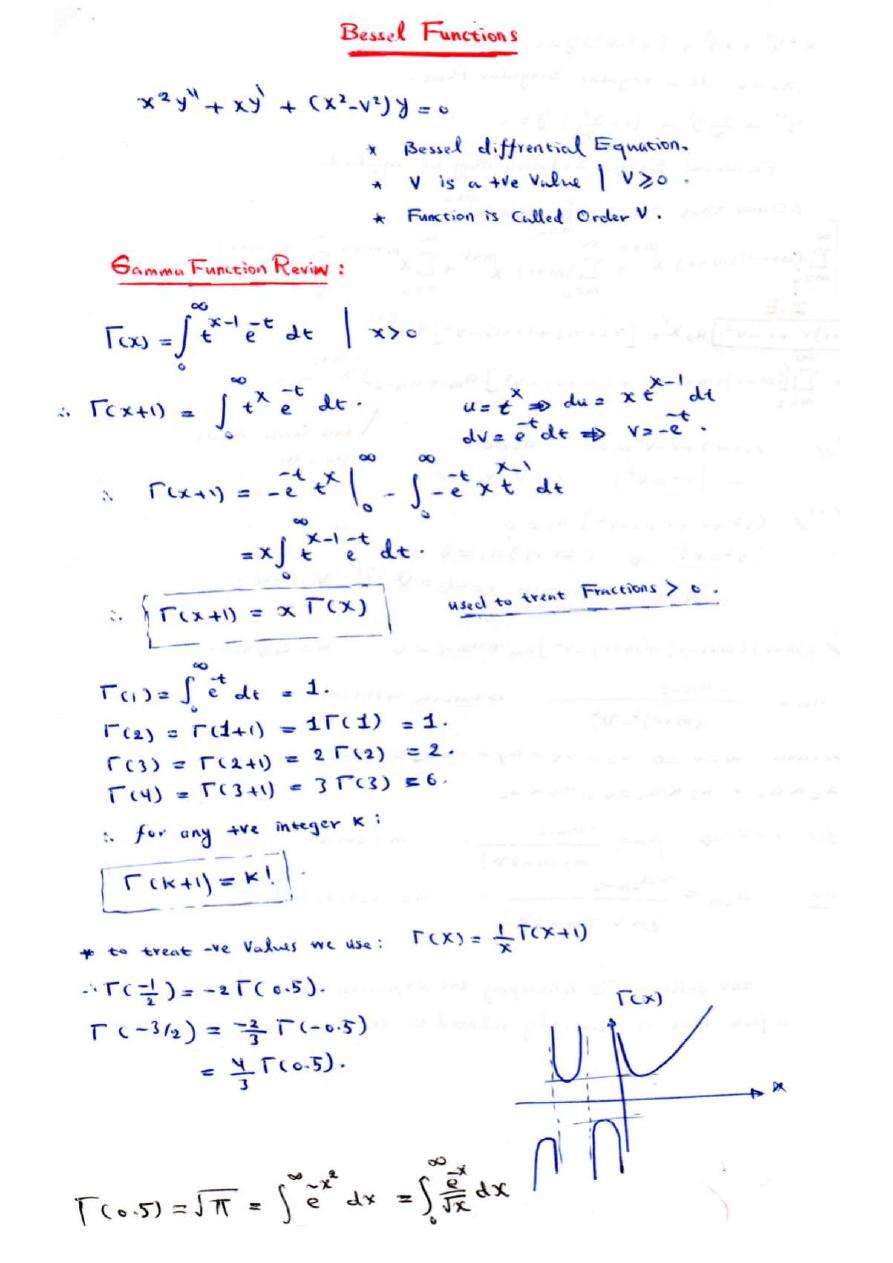 Bessel Functions
x²y'' + xy' + (x²-v²)y = 0
* Bessel diffrential Equation.
* V is a +ve Value | V≥0.
* Function is Called Order V.
Gamma Function Reviw :
Γ(x) = ∫₀^∞ t^(x-1) e^(-t) dt | x>0
∴ Γ(x+1) = ∫₀^∞ t^x e^(-t) dt. u = t^x ⇒ du = x t^(x-1) dt
dv = e^(-t) dt ⇒ v = -e^(-t).
∴ Γ(x+1) = -e^(-t) t^x |₀^∞ - ∫₀^∞ -e^(-t) x t^(x-1) dt
= x ∫₀^∞ t^(x-1) e^(-t) dt.
∴ Γ(x+1) = x Γ(x) used to treat Fractions > 0.
Γ(1) = ∫₀^∞ e^(-t) dt = 1.
Γ(2) = Γ(1+1) = 1Γ(1) = 1.
Γ(3) = Γ(2+1) = 2Γ(2) = 2.
Γ(4) = Γ(3+1) = 3Γ(3) = 6.
∴ for any +ve integer K :
Γ(K+1) = K! .
* to treat -ve Values we use : Γ(X) = 1/x Γ(X+1)
∴ Γ(-1/2) = -2Γ(0.5).
Γ(-3/2) = -2/3 Γ(-0.5)
= 4/3 Γ(0.5).
Γ(x)
x
Γ(0.5) = √π = ∫^∞ e^(-x²) dx = ∫₀^∞ e^(-x)/√x dx